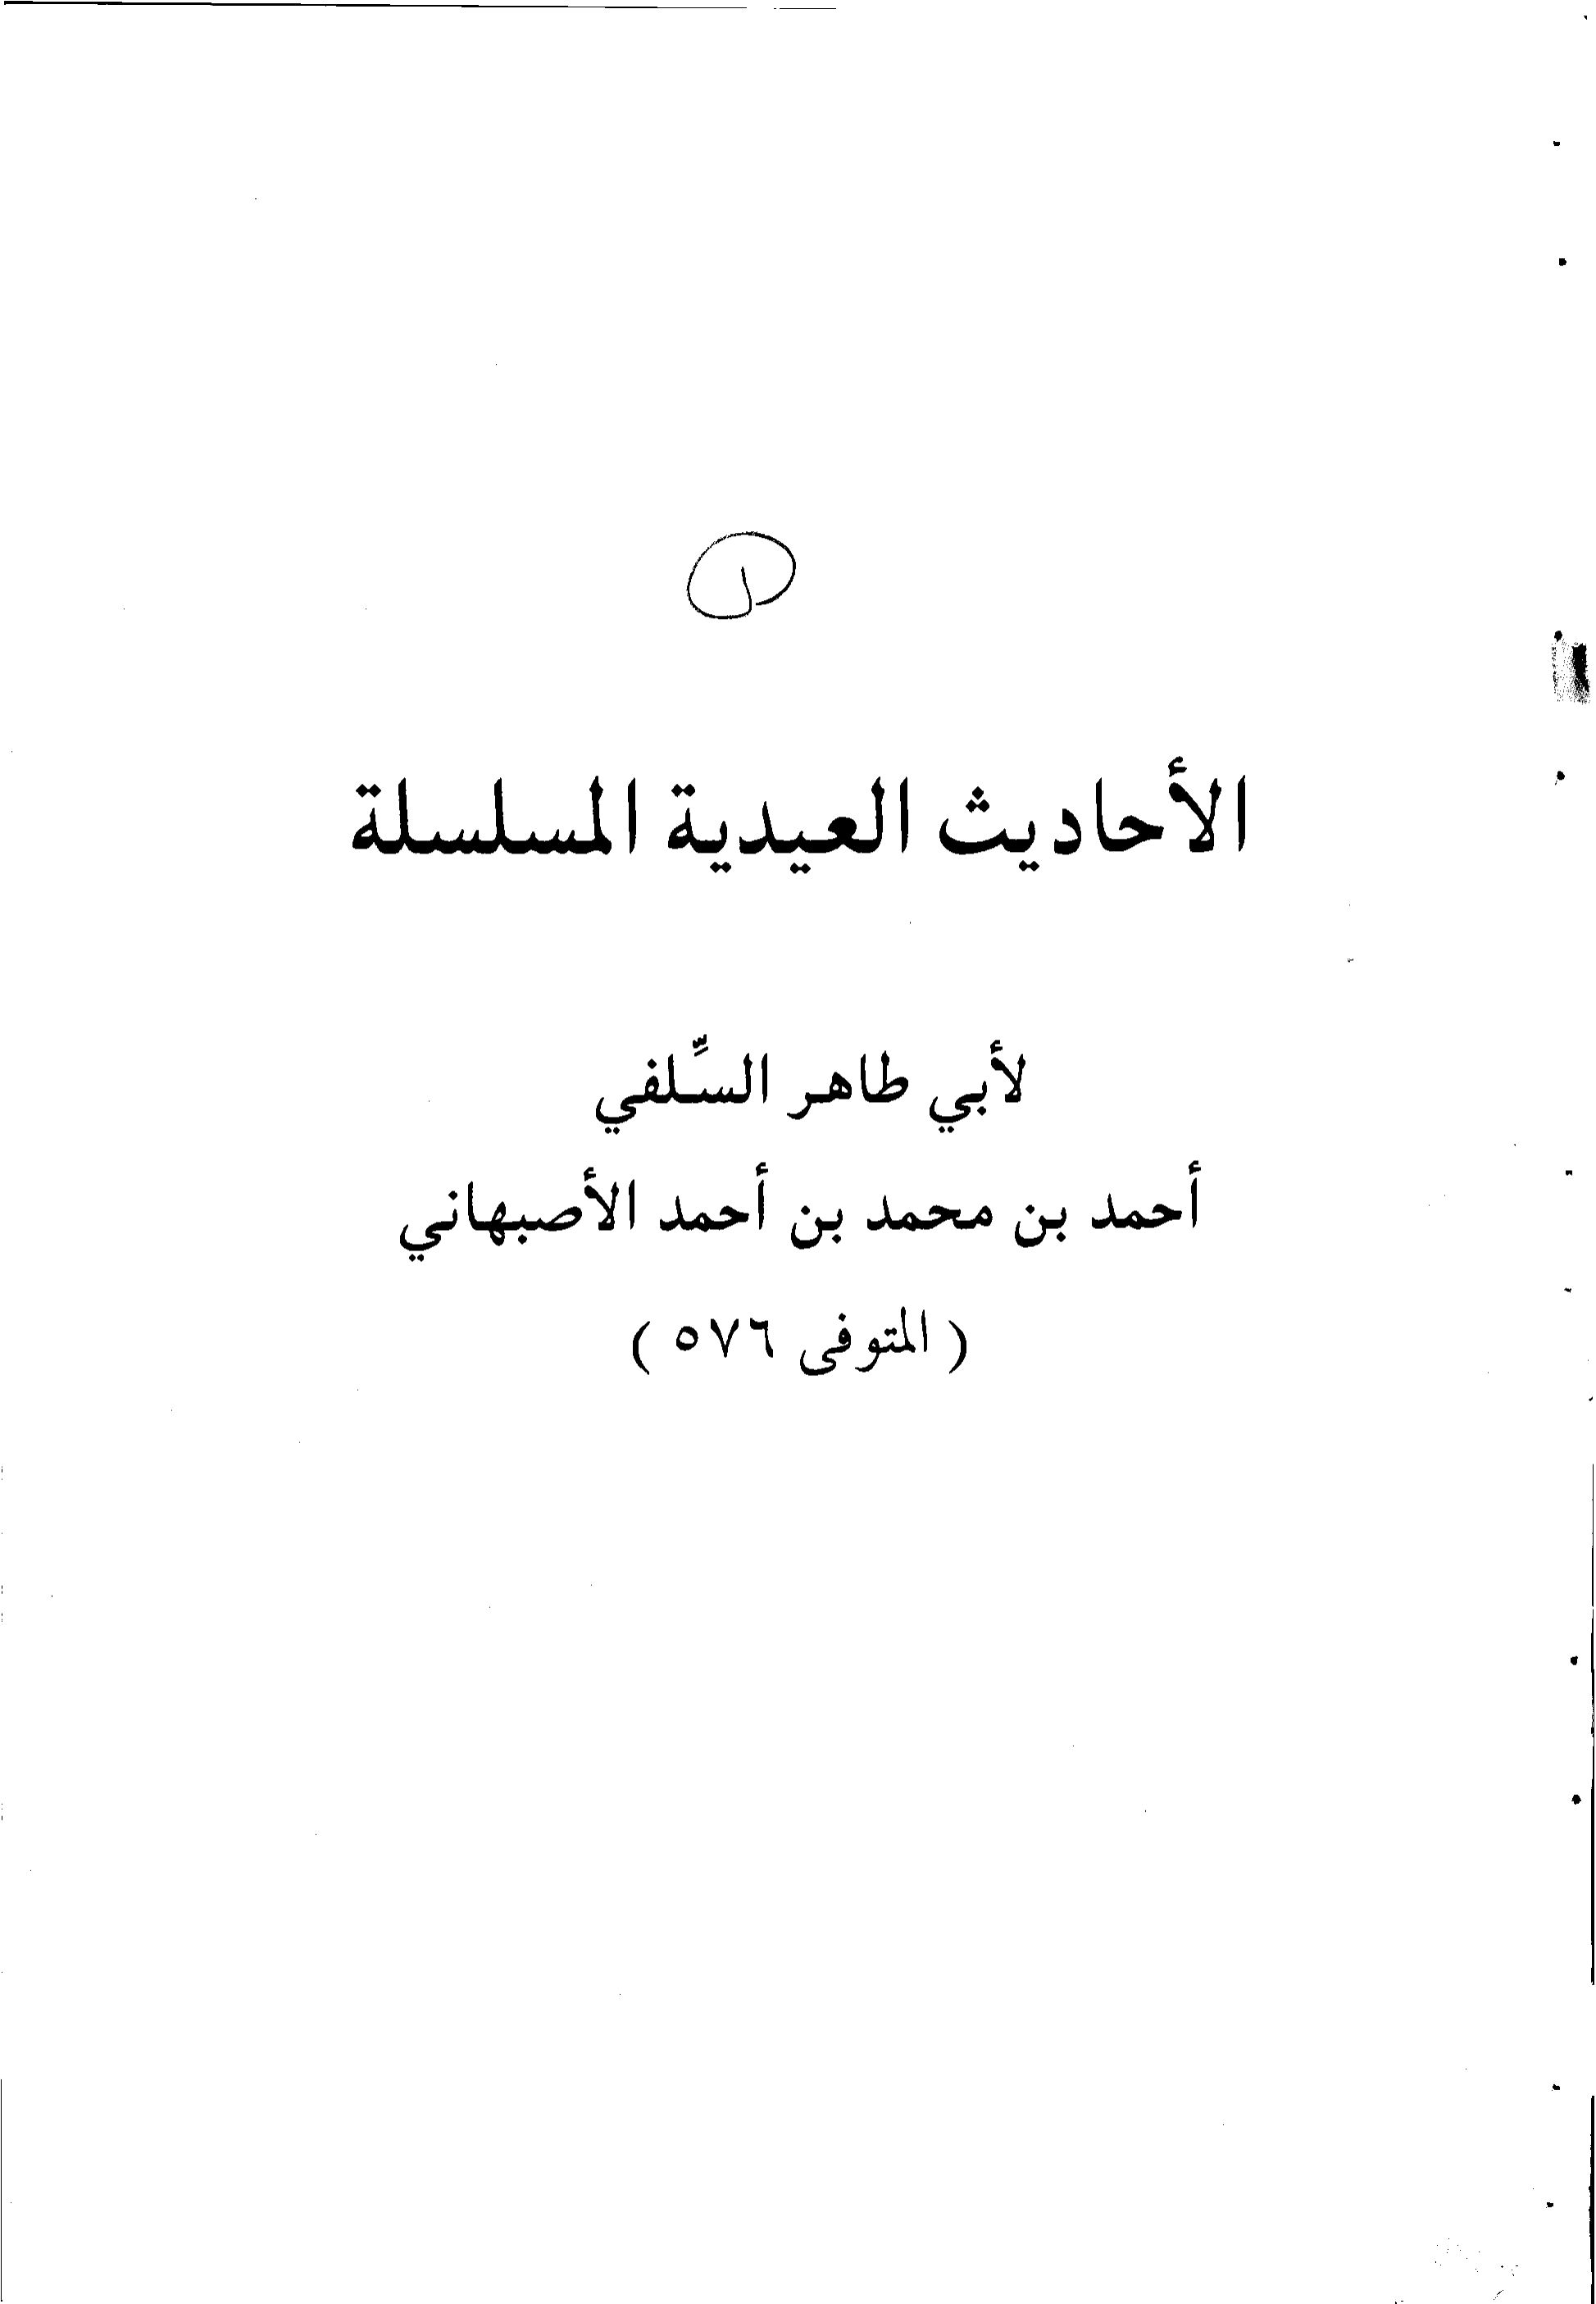 الأحاديث العيدية المسلسلة
لأبي طاهر السِّلفي
أحمد بن محمد بن أحمد الأصبهاني
( المتوفى ٥٧٦ )